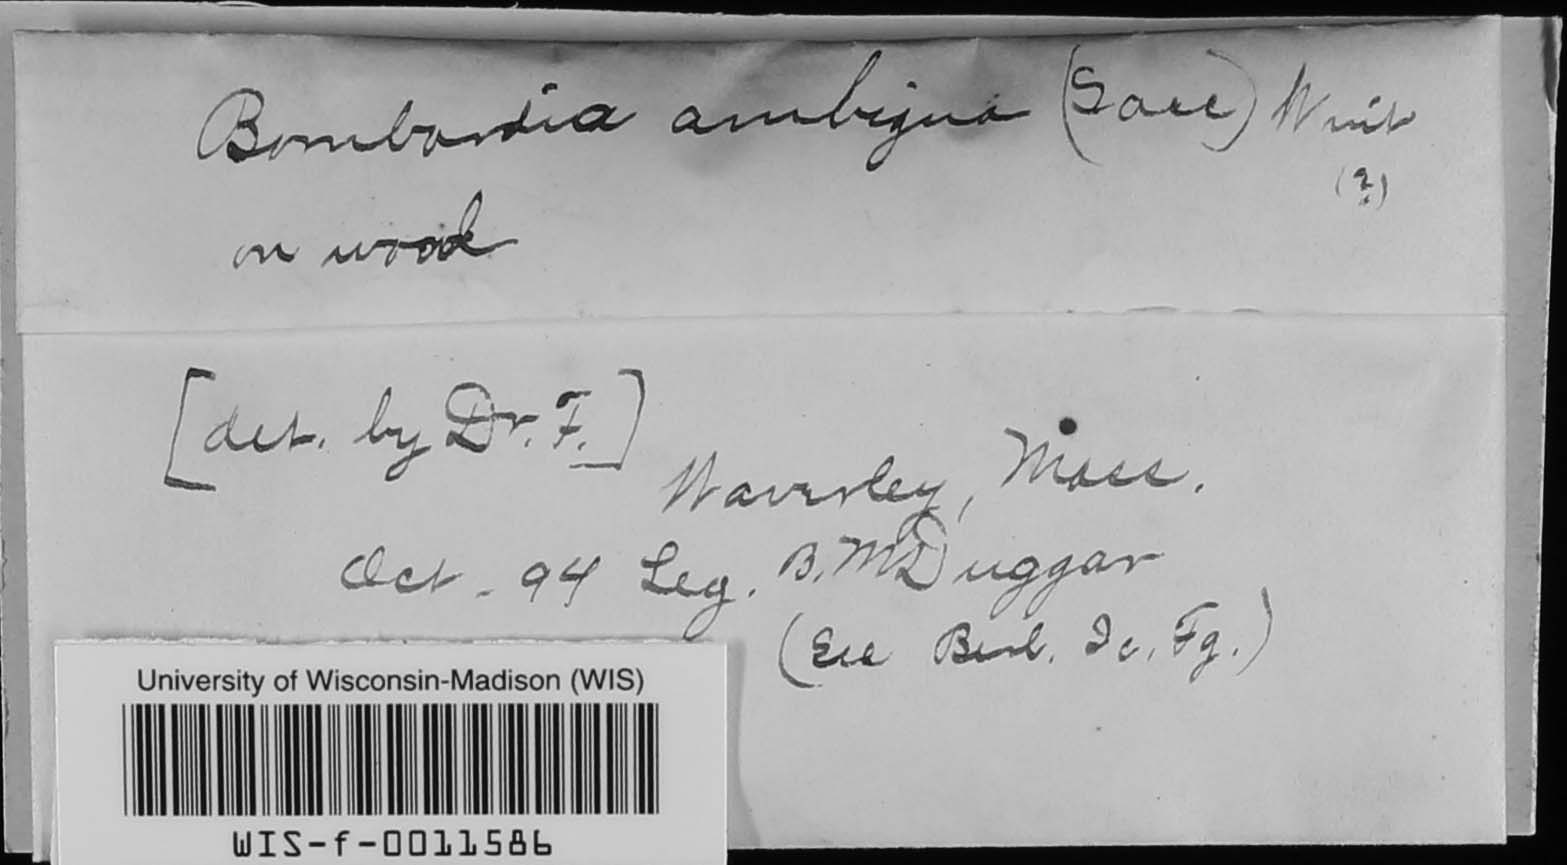 Bombardia ambigua (Sacc) Wint
(?)
on wood
[det. by Dr. F.]
Waverley, Mass.
Oct. 94 Leg. B. M Duggar
(See Berl. Ic. Fg.)
University of Wisconsin-Madison (WIS)
WIS-f-0011586